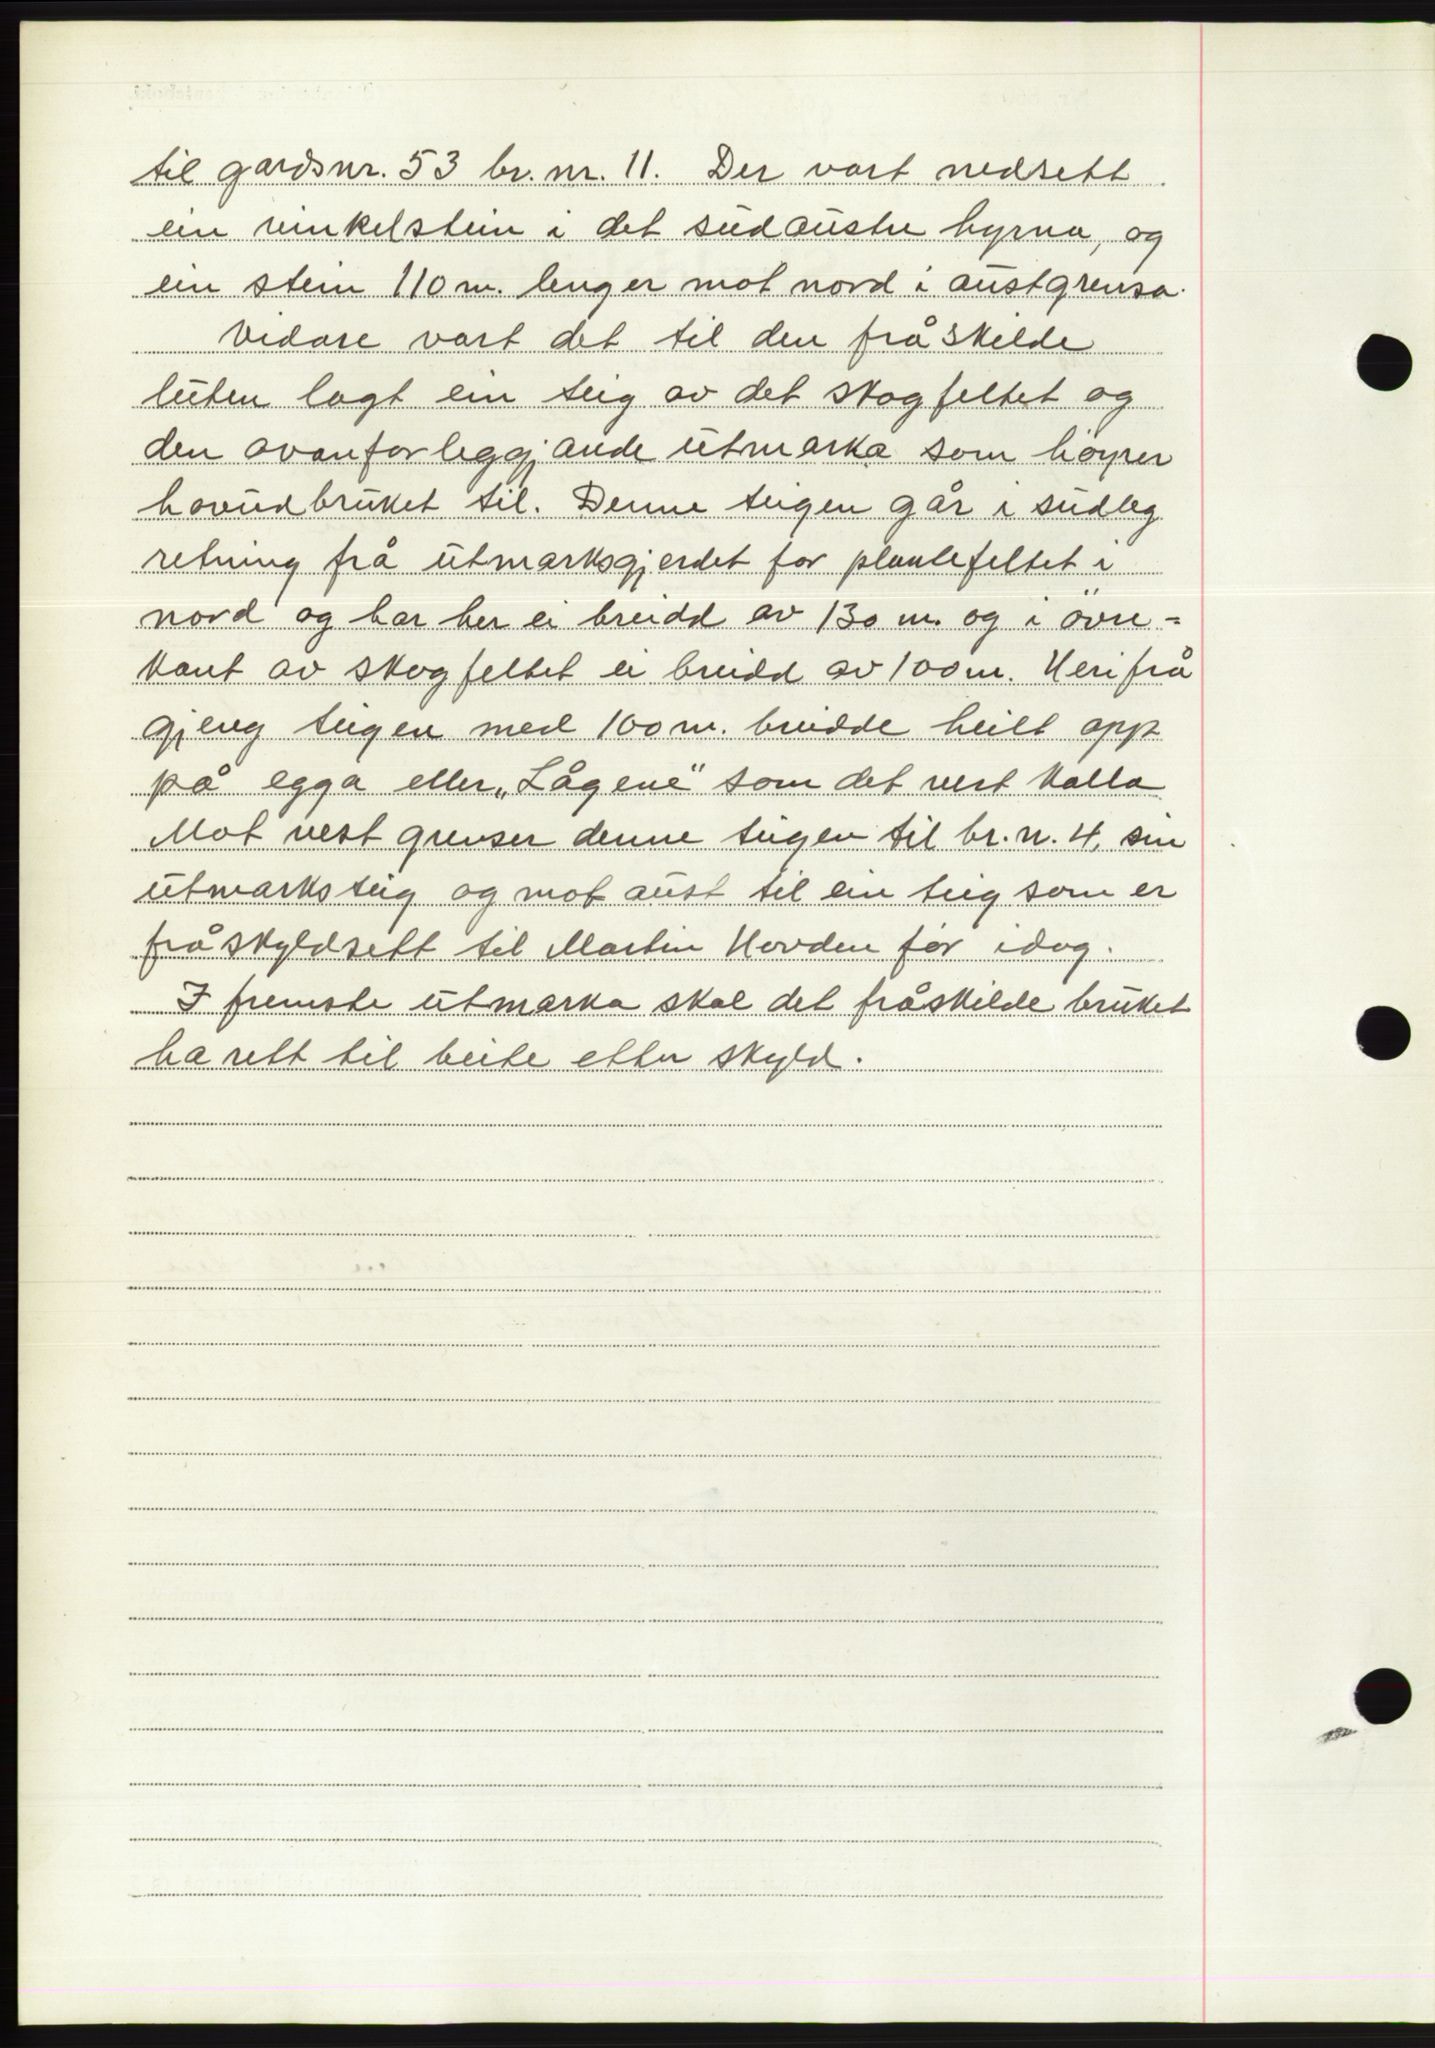 til gardsnr. 53 br. nr. 11. Der vart nedsett
ein vinkelstein i det sudaustre hyrna, og
ein stein 110 m. lenger mot nord i austgrensa.
Vidare vart det til den fråskilde
luten lagt ein teig av det skogfeltet og
den ovanforleggjande utmarka som höyrer
hovudbruket til. Denne teigen går i sudleg
retning frå utmarksgjerdet for plantefeltet i
nord og har her ei breidd av 130 m. og i övre-
kant av skogfeltet ei breidd av 100 m. Herifrå
gjeng teigen med 100 m. breidde heilt opp
på egga eller „Lågene" som det vert kalla
Mot vest grenser denne teigen til br. n. 4, sin
utmarksteig og mot aust til ein teig som er
fråskyldsett til Martin Hovden för idag.
I fremste utmarka skal det fråskilde bruket
ha rett til beite etter skyld.